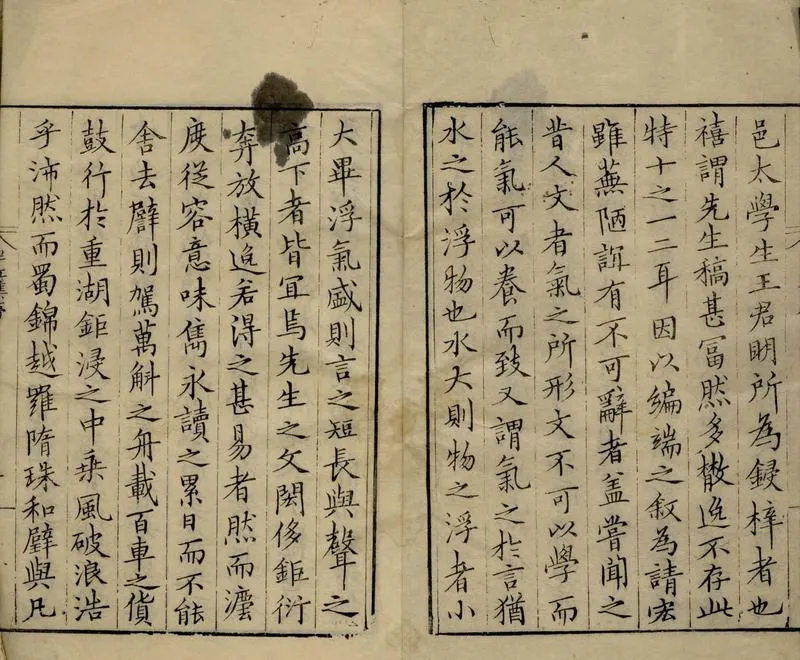 邑太學生王君明所為鋟梓者也
禧謂先生稿甚冨然多散逸不存此
特十之一二耳因以编端之叙為請宏
雖蕪陋誼有不可辭者盖嘗聞之
昔人文者氣之所形文不可以學而
能氣可以養而致又謂氣之於言猶
水之於浮物也水大則物之浮者小
大畢浮氣盛則言之短長與聲之
高下者皆宜焉先生之文閎侈鉅衍
奔放横逸若得之甚易者然而灋
度從容意味雋永讀之累日而不能
舍去譬則駕萬斛之舟載百車之貨
鼓行於重湖鉅浸之中乗風破浪浩
乎沛然而蜀錦越羅隋珠和璧與凡